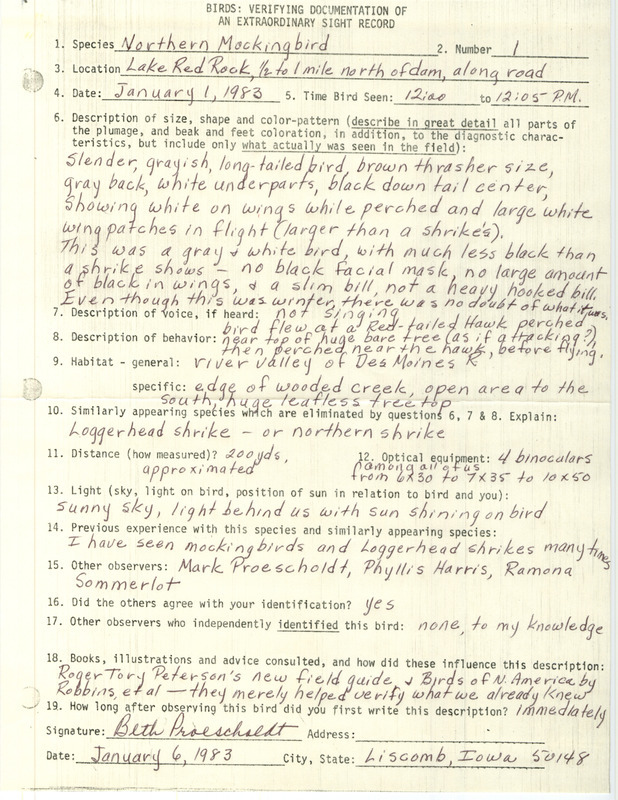 BIRDS: VERIFYING DOCUMENTATION OF
AN EXTRAORDINARY SIGHT RECORD
1. Species Northern Mockingbird 2. Number 1
3. Location Lake Red Rock, 1/2 to 1 mile north of dam, along road
4. Date: January 1, 1983 5. Time Bird Seen: 12:00 to 12:05 P.M.
6. Description of size, shape and color-pattern (describe in great detail all parts of
the plumage, and beak and feet coloration, in addition, to the diagnostic charac-
teristics, but include only what actually was seen in the field):
Slender, grayish, long-tailed bird, brown thrasher size,
gray back, white underparts, black down tail center,
Showing white on wings while perched and large white
wing patches in flight (larger than a shrike's).
This was a gray & white bird, with much less black than
a shrike shows – no black facial mask, no large amount
of black in wings, & a slim bill, not a heavy hooked bill.
Even though this was winter, there was no doubt of what it was.
7. Description of voice, if heard: not singing
bird flew at a Red-tailed Hawk perched
8. Description of behavior: near top of huge bare tree (as if attacking?),
then perched near the hawk, before flying.
9. Habitat - general: river valley of Des Moines R
specific: edge of wooded creek, open area to the
south, huge leafless tree top
10. Similarly appearing species which are eliminated by questions 6, 7 & 8. Explain:
Loggerhead shrike – or northern shrike
11. Distance (how measured)? 200 yds, 12. Optical equipment: 4 binoculars
approximated among all of us
from 6X30 to 7X35 to 10X50
13. Light (sky, light on bird, position of sun in relation to bird and you):
sunny sky, light behind us with sun shining on bird
14. Previous experience with this species and similarly appearing species:
I have seen mockingbirds and Loggerhead shrikes many times
15. Other observers: Mark Proescholdt, Phyllis Harris, Ramona
Sommerlot
16. Did the others agree with your identification? yes
17. Other observers who independently identified this bird: none, to my knowledge
18. Books, illustrations and advice consulted, and how did these influence this description:
Roger Tory Peterson's new field guide, & Birds of N. America by
Robbins, et al – they merely helped verify what we already knew
19. How long after observing this bird did you first write this description? immediately
Signature: Beth Proescholdt Address:
Date: January 6, 1983 City, State: Liscomb, Iowa 50148